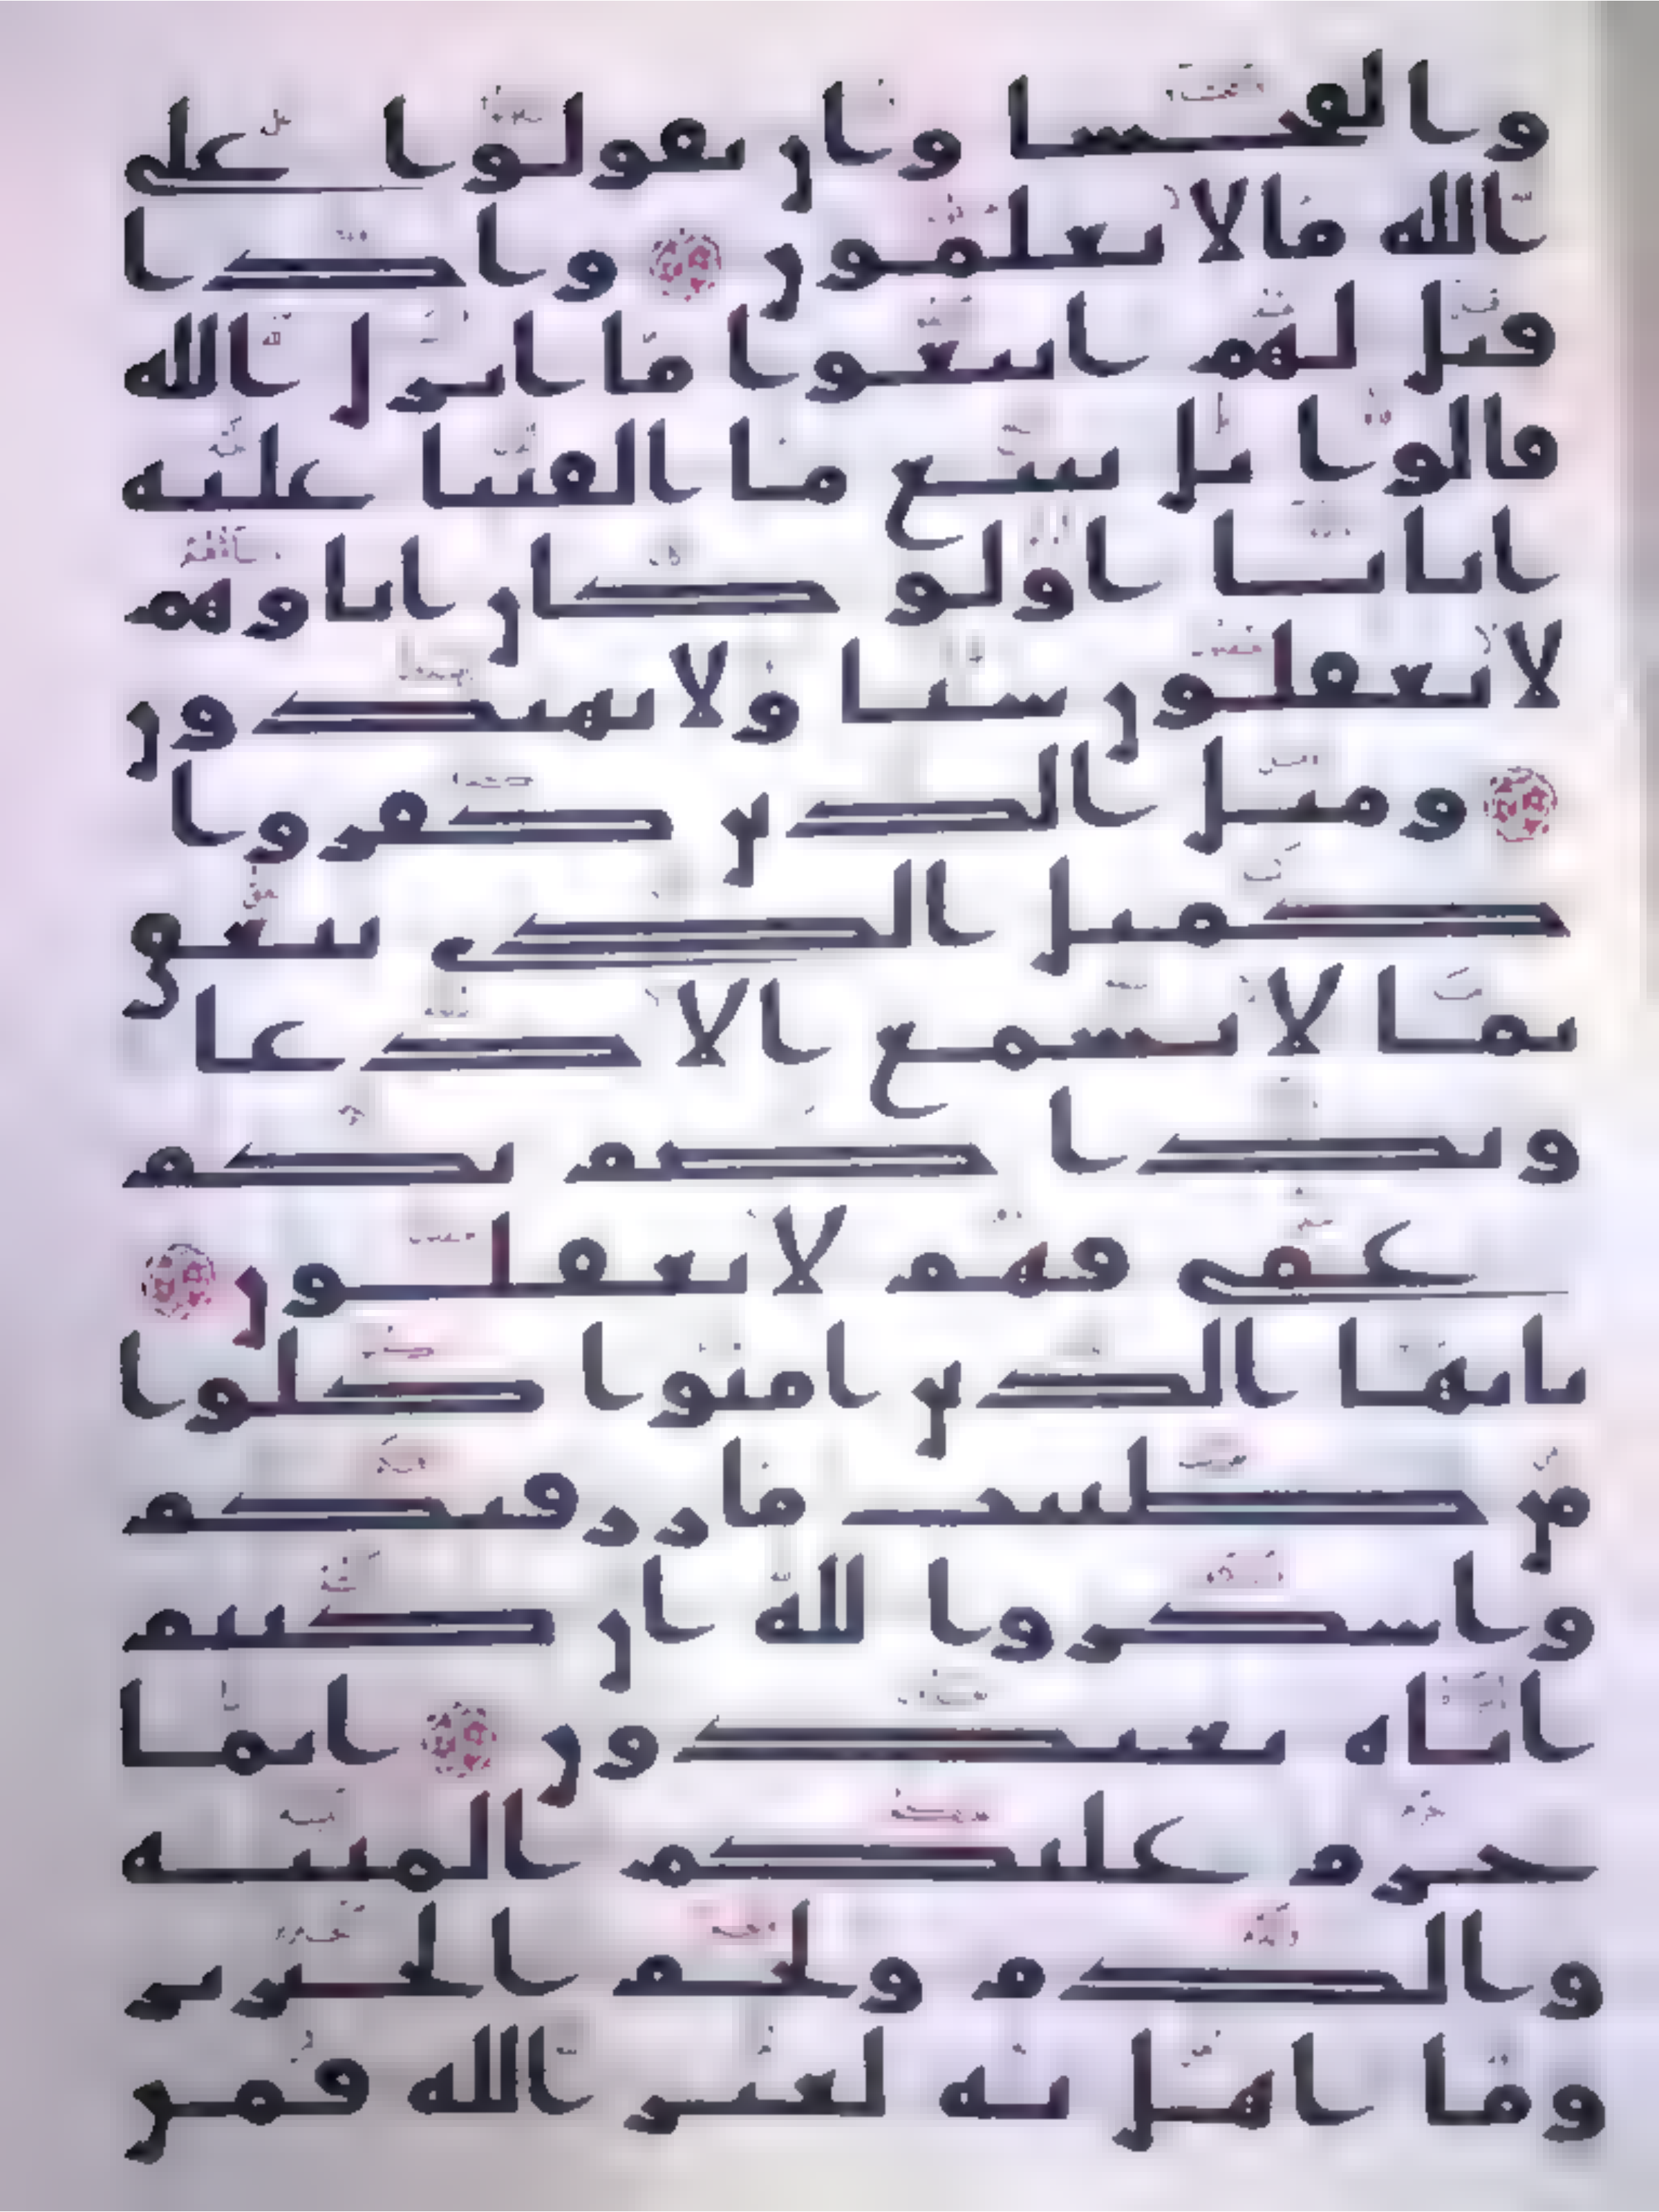 والفحشا وان تقولوا على
الله ما لا تعلمون واذا
قيل لهم اتبعوا ما انزل الله
قالوا بل نتبع ما الفينا عليه
ابانا اولو كان اباوهم
لا يعقلون شيا ولا يهتدون
ومثل الذين كفروا
كمثل الذي ينعق
بما لا يسمع الا دعا
وندا صم بكم
عمي فهم لا يعقلون
يايها الذين امنوا كلوا
من طيبت ما رزقنكم
واشكروا لله ان كنتم
اياه تعبدون انما
حرم عليكم الميته
والدم ولحم الخنزير
وما اهل به لغير الله فمن